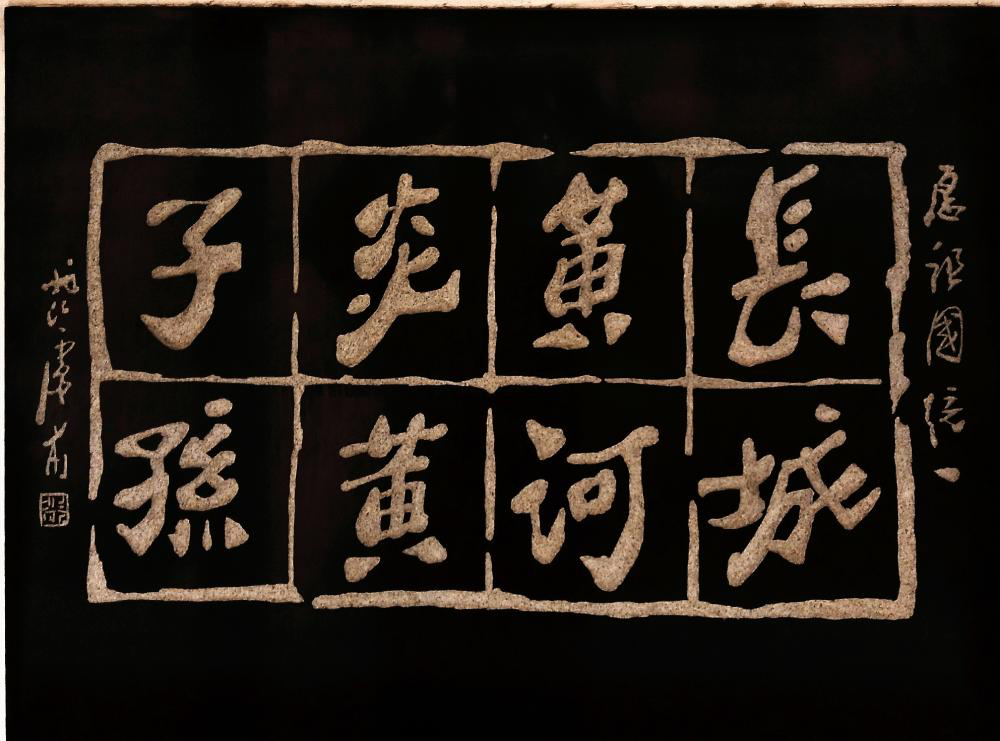 愿祖國統一
長城
黃河
炎黃
子孫